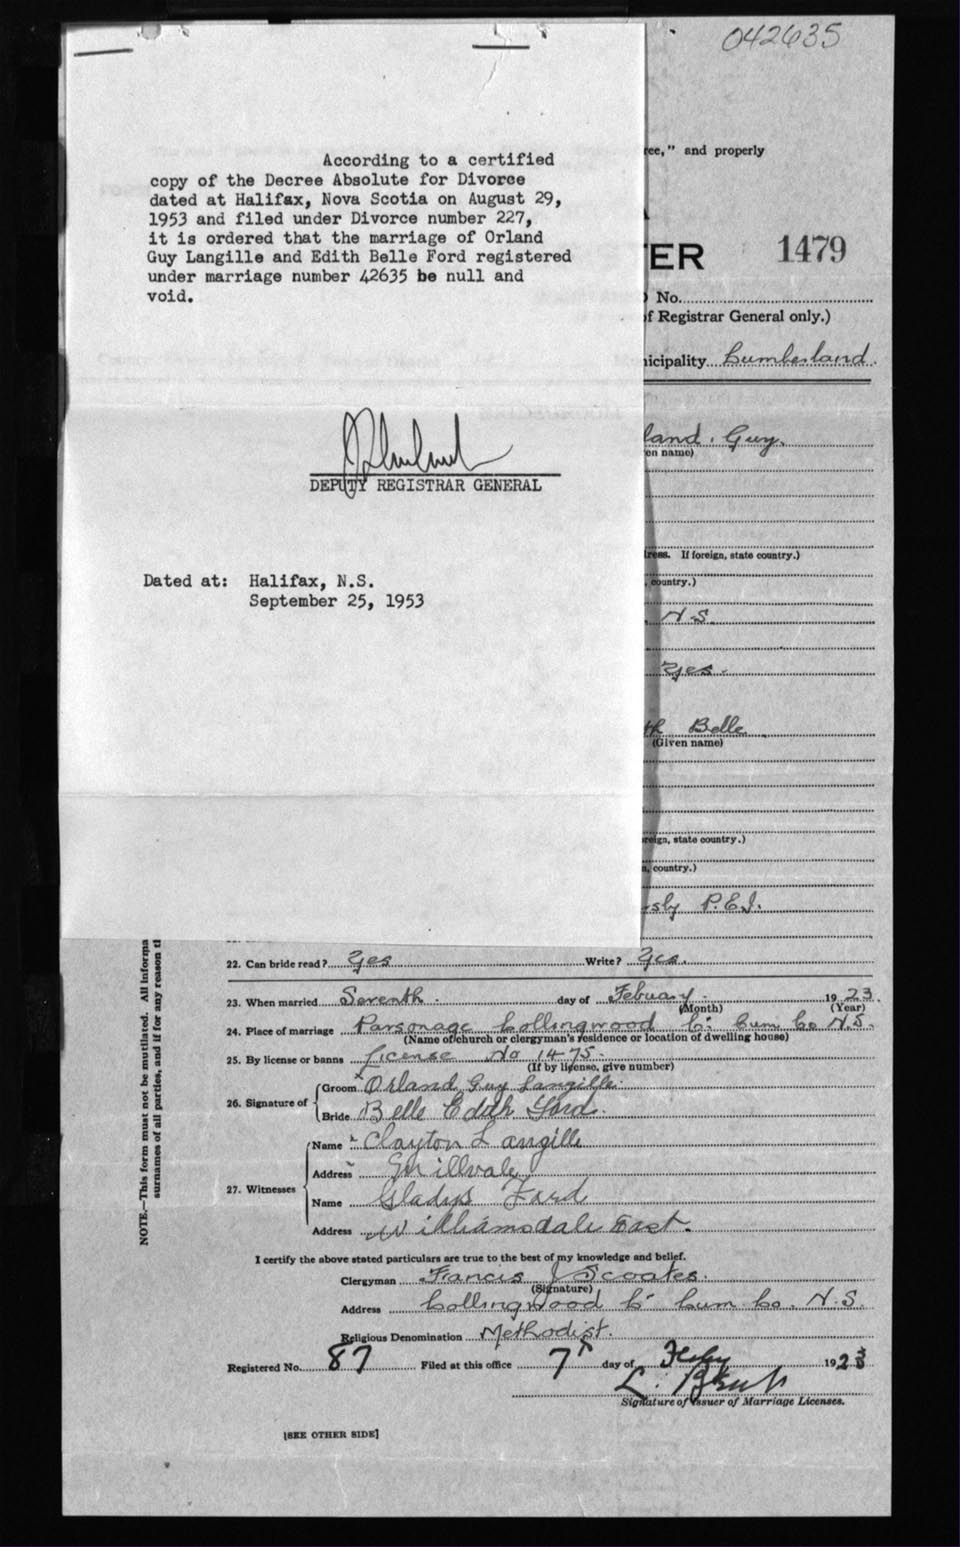 042635
According to a certified
copy of the Decree Absolute for Divorce
dated at Halifax, Nova Scotia on August 29,
1953 and filed under Divorce number 227,
it is ordered that the marriage of Orland
Guy Langille and Edith Belle Ford registered
under marriage number 42635 be null and
void.
DEPUTY REGISTRAR GENERAL
Dated at: Halifax, N.S.
September 25, 1953
ree," and properly
ER 1479
No.
f Registrar General only.)
icipality Cumberland.
land. Guy.
en name)
ress. If foreign, state country.)
, country.)
N.S.
Yes.
th Belle
(Given name)
reign, state country.)
n, country.)
sly P.E.I.
22. Can bride read? Yes Write? Yes.
23. When married Seventh. day of Febuary. 1923.
(Month) (Year)
24. Place of marriage Parsonage Collingwood C. Cum Co N.S.
(Name of church or clergyman's residence or location of dwelling house)
25. By license or banns License No 1475.
(If by license, give number)
26. Signature of
Groom Orland Guy Langille.
Bride Belle Edith Ford.
27. Witnesses
Name Clayton Langille
Address Millvale
Name Gladys Ford
Address Williamsdale East.
I certify the above stated particulars are true to the best of my knowledge and belief.
Clergyman Francis J Scoates.
(Signature)
Address Collingwood C. Cum Co. N.S.
Religious Denomination Methodist.
Registered No. 87 Filed at this office 7th day of Feby 1923
Signature of Issuer of Marriage Licenses.
[SEE OTHER SIDE]
NOTE.—This form must not be mutilated. All informa
surnames of all parties, and if for any reason t